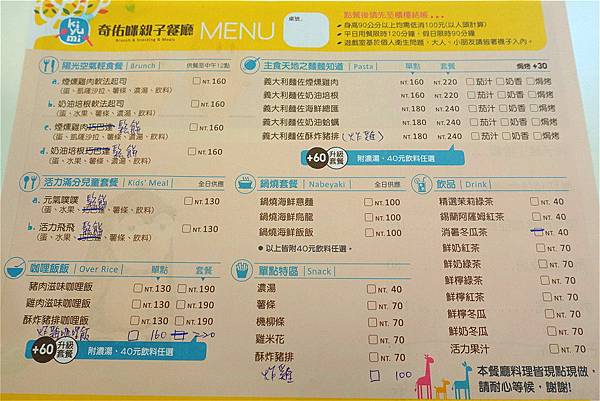 kiyumi
奇佑咪親子餐廳 MENU
Brunch & Snacking & Meals
桌號:
點餐後請先至櫃檯結帳
身高90公分以上均需低消100元(以人頭計算)
平日用餐限時120分鐘，假日限時90分鐘
遊戲室基於個人衛生問題，大人、小朋友請皆著襪子入內。
陽光空氣輕食餐 | Brunch | 供餐至中午12點
a. 煙燻雞肉軟法起司 □ NT.160
(蛋、凱薩沙拉、薯條、濃湯、飲料)
b. 奶油培根軟法起司 □ NT.160
(蛋、水果、薯條、濃湯、飲料)
c. 煙燻雞肉巧巴達 鬆餅 □ NT.160
(蛋、凱薩沙拉、薯條、濃湯、飲料)
d. 奶油培根巧巴達 鬆餅 □ NT.160
(蛋、水果、薯條、濃湯、飲料)
主食天地之麵麵知道 | Pasta | 單點 套餐 焗烤 +30
義大利麵佐煙燻雞肉 □ NT.160 □ NT.220 □茄汁 □奶香 □焗烤
義大利麵佐奶油培根 □ NT.160 □ NT.220 □茄汁 □奶香 □焗烤
義大利麵佐海鮮總匯 □ NT.180 □ NT.240 □茄汁 □奶香 □焗烤
義大利麵佐奶油蛤蠣 □ NT.180 □ NT.240 □茄汁 □奶香 □焗烤
義大利麵佐酥炸豬排 (炸雞) □ NT.180 □ NT.240 □茄汁 □奶香 □焗烤
+60 升級套餐 附濃湯、40元飲料任選
活力滿分兒童套餐 | Kids' Meal | 全日供應
a. 元氣噗噗 鬆餅 □ NT.130
(蛋、水果、薯條、飲料)
b. 活力飛飛 鬆餅 □ NT.130
(蛋、水果、薯條、飲料)
鍋燒套餐 | Nabeyaki | 全日供應
鍋燒海鮮意麵 □ NT.100
鍋燒海鮮烏龍 □ NT.100
鍋燒海鮮飯飯 □ NT.100
● 以上皆附40元飲料任選。
飲品 | Drink |
精選茉莉綠茶 □ NT. 40
錫蘭阿薩姆紅茶 □ NT. 40
消暑冬瓜茶 □ NT. 40
鮮奶紅茶 □ NT. 70
鮮奶綠茶 □ NT. 70
鮮檸綠茶 □ NT. 70
鮮檸紅茶 □ NT. 70
鮮檸冬瓜 □ NT. 70
鮮奶冬瓜 □ NT. 70
活力果汁 □ NT. 70
咖哩飯飯 | Over Rice | 單點 套餐
豬肉滋味咖哩飯 □ NT.130 □ NT.190
雞肉滋味咖哩飯 □ NT.130 □ NT.190
酥炸豬排咖哩飯 □ NT.130 □ NT.190
炸雞咖哩飯 □ 160 □ 220
+60 升級套餐 附濃湯、40元飲料任選
單點特區 | Snack |
濃湯 □ NT. 40
薯條 □ NT. 70
機柳條 □ NT. 70
雞米花 □ NT. 70
酥炸豬排 □ NT. 70
炸雞 □ 100
本餐廳料理皆現點現做，
請耐心等候，謝謝!